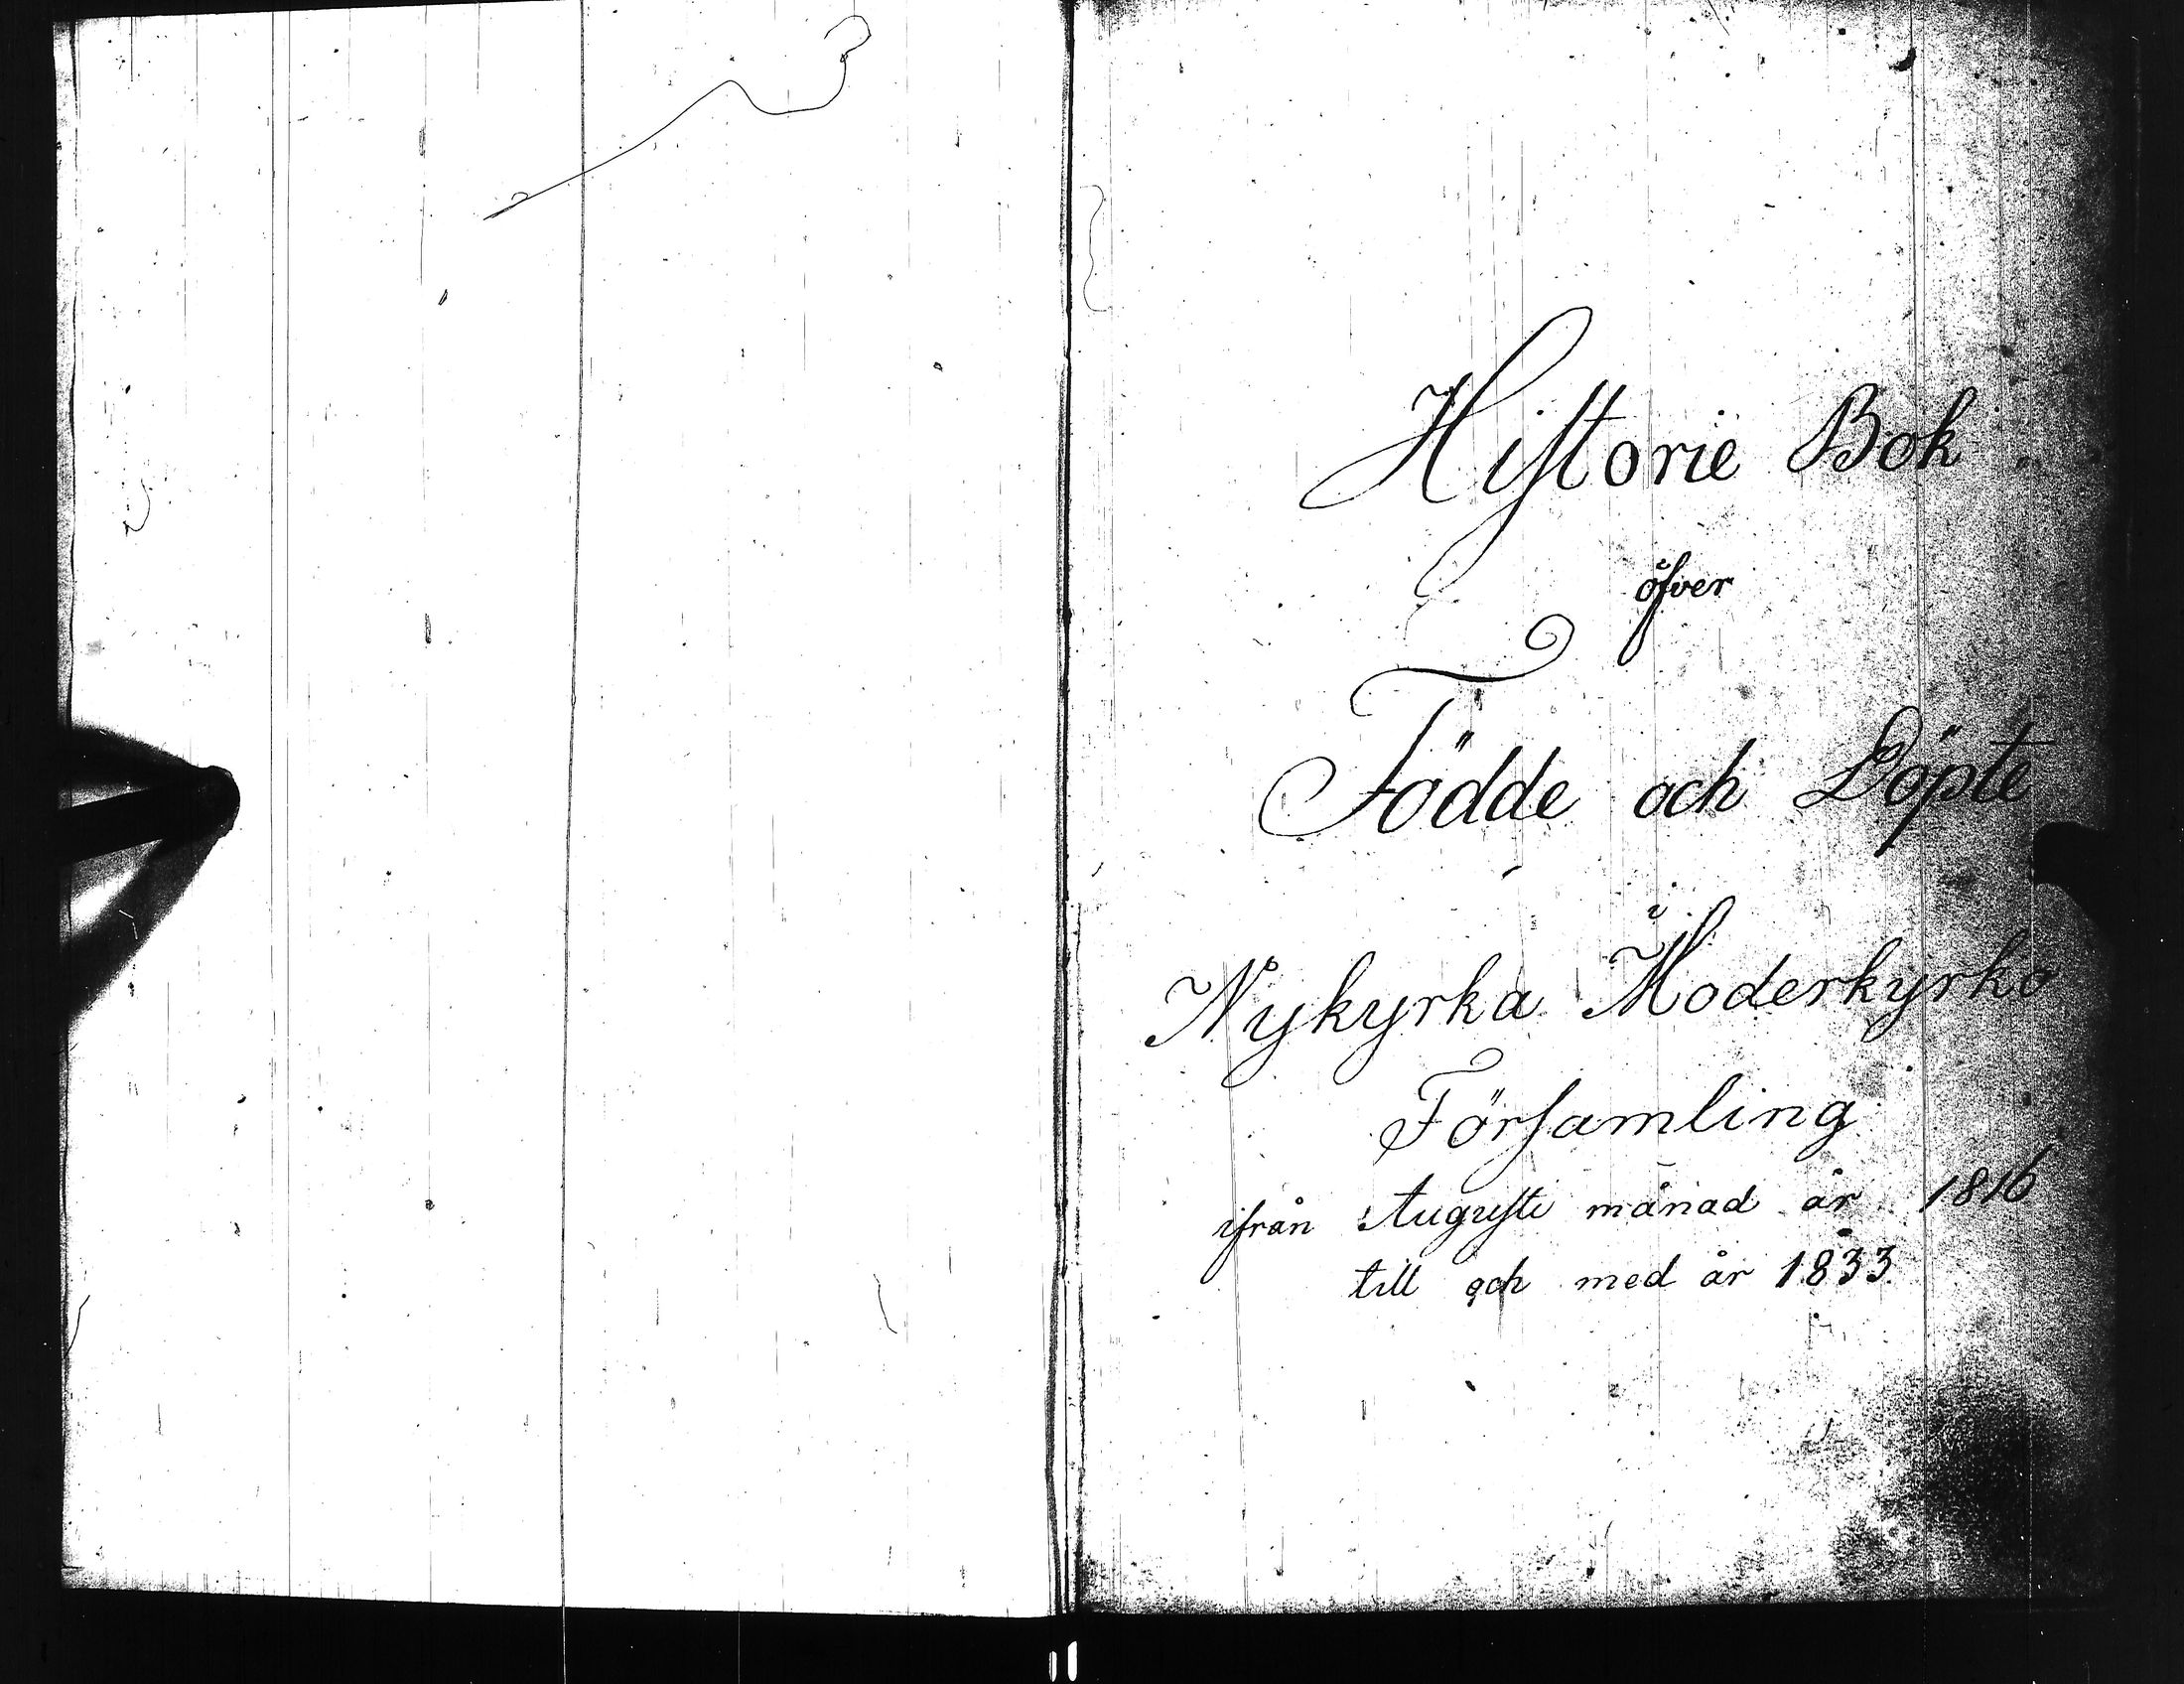 Historie Bok
öfver
Födde och Döpte
i
Nykyrka Moderkyrko
Församling
ifrån Augusti månad år 1816
till och med år 1833.